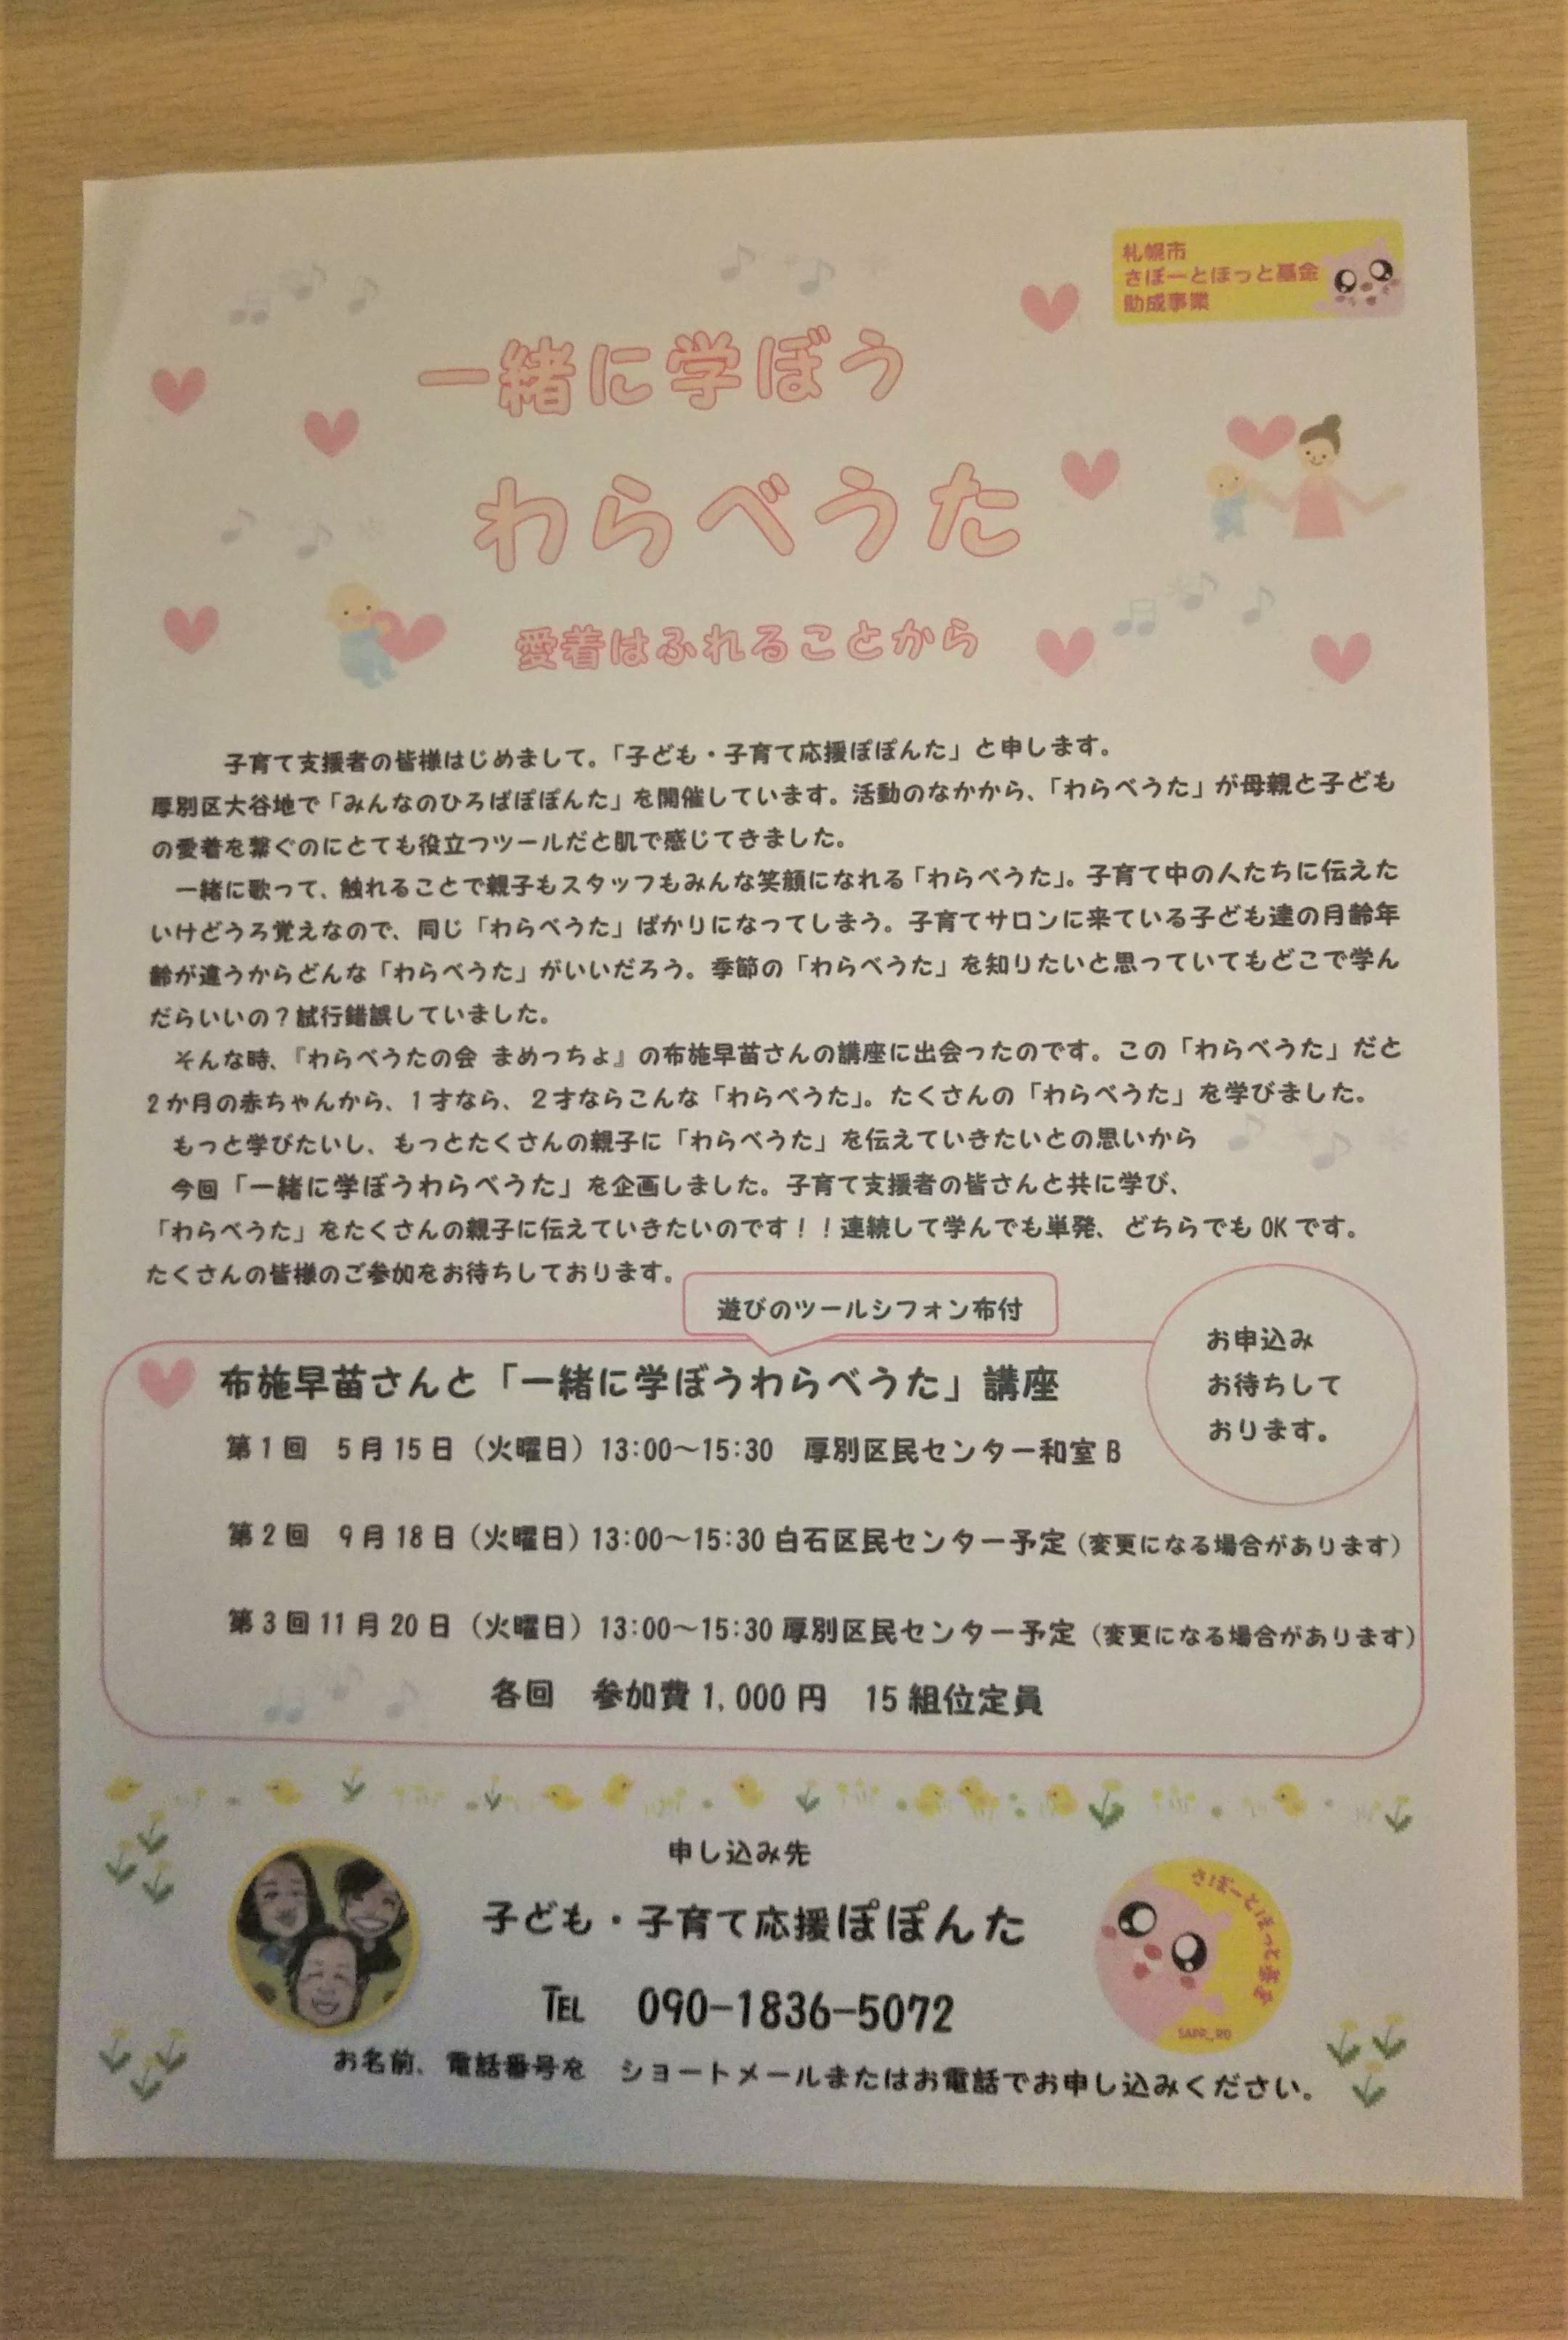 札幌市
さぽーとほっと基金
助成事業
一緒に学ぼう
わらべうた
愛着はふれることから
子育て支援者の皆様はじめまして。「子ども・子育て応援ぽぽんた」と申します。
厚別区大谷地で「みんなのひろばぽぽんた」を開催しています。活動のなかから、「わらべうた」が母親と子ども
の愛着を繋ぐのにとても役立つツールだと肌で感じてきました。
一緒に歌って、触れることで親子もスタッフもみんな笑顔になれる「わらべうた」。子育て中の人たちに伝えた
いけどうろ覚えなので、同じ「わらべうた」ばかりになってしまう。子育てサロンに来ている子ども達の月齢年
齢が違うからどんな「わらべうた」がいいだろう。季節の「わらべうた」を知りたいと思っていてもどこで学ん
だらいいの？試行錯誤していました。
そんな時、『わらべうたの会 まめっちょ』の布施早苗さんの講座に出会ったのです。この「わらべうた」だと
2か月の赤ちゃんから、1才なら、2才ならこんな「わらべうた」。たくさんの「わらべうた」を学びました。
もっと学びたいし、もっとたくさんの親子に「わらべうた」を伝えていきたいとの思いから
今回「一緒に学ぼうわらべうた」を企画しました。子育て支援者の皆さんと共に学び、
「わらべうた」をたくさんの親子に伝えていきたいのです！！連続して学んでも単発、どちらでもOKです。
たくさんの皆様のご参加をお待ちしております。
遊びのツールシフォン布付
お申込み
お待ちして
おります。
布施早苗さんと「一緒に学ぼうわらべうた」講座
第1回 5月15日（火曜日）13:00～15:30 厚別区民センター和室B
第2回 9月18日（火曜日）13:00～15:30 白石区民センター予定（変更になる場合があります）
第3回11月20日（火曜日）13:00～15:30 厚別区民センター予定（変更になる場合があります）
各回 参加費1,000円 15組位定員
申し込み先
子ども・子育て応援ぽぽんた
TEL 090-1836-5072
お名前、電話番号を ショートメールまたはお電話でお申し込みください。
さぽーとほっと基金
SAPP_RO